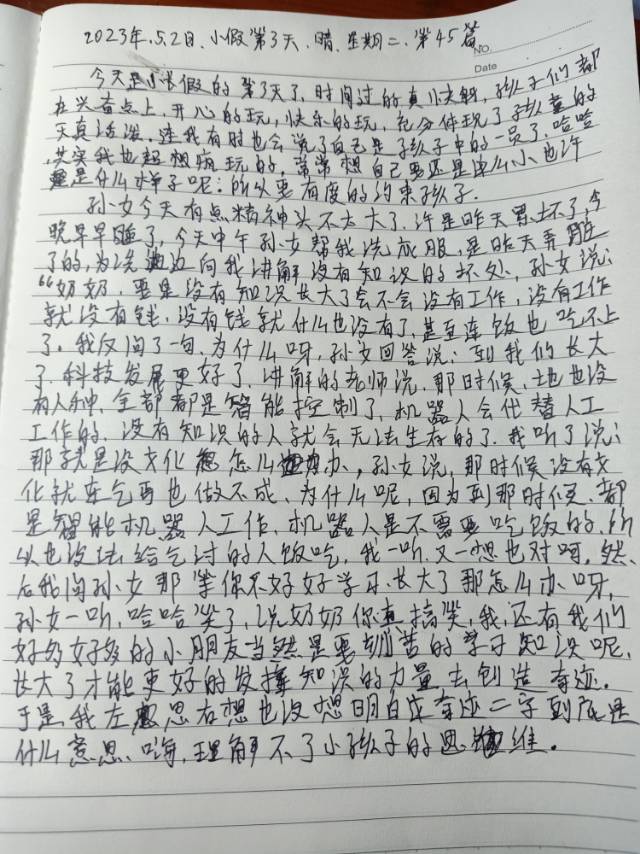 2023年.5.2日.小假第3天.晴.星期二.第45篇
No.
Date
今天是小长假的第3天了,时间过的真小快呀,孩子们都
在兴奋点上,开心的玩,快乐的玩,充分体现了孩童的
天真活泼,连我有时也会说了自己是孩子中的一员了,哈哈
其实我也超想疯玩的,常常想自己要还是那么小也许
是什么样子呢:所以要有度的约束孩子.
孙女今天有点精神头不太大了.许是昨天累坏了,今
晚早早睡了,今天中午孙女帮我洗衣服,是昨天弄脏
了的,为洗边向我讲解没有知识的坏处,孙女说:
“奶奶,要是没有知识长大了会不会没有工作,没有工作
就没有钱.没有钱就什么也没有了,甚至连饭也吃不上
了.我反问了一句,为什么呀,孙女回答说:到我们长大
了.科技发展更好了.讲解的老师说.那时候,地也没
有人种,全部都是智能控制了,机器人会代替人工
工作的.没有知识的人就会无法生存的了.我听了说:
那就是没文化怎么办,孙女说,那时候没有文
化就连乞丐也做不成.为什么呢,因为到那时候.都
是智能机器人工作,机器人是不需要吃饭的.所
以也没法给乞讨的人饭吃,我一听,又一想也对呀,然
后我问孙女那等你不好好学习.长大了那怎么办呀,
孙女一听,哈哈笑了,说奶奶你真搞笑,我,还有我们
好多好多的小朋友当然是要刻苦的学习知识呢,
长大了才能更好的发挥知识的力量去创造奇迹.
于是我左思右想也没想明白这奇迹二字到底是
什么意思.嗨,理解不了小孩子的思维.